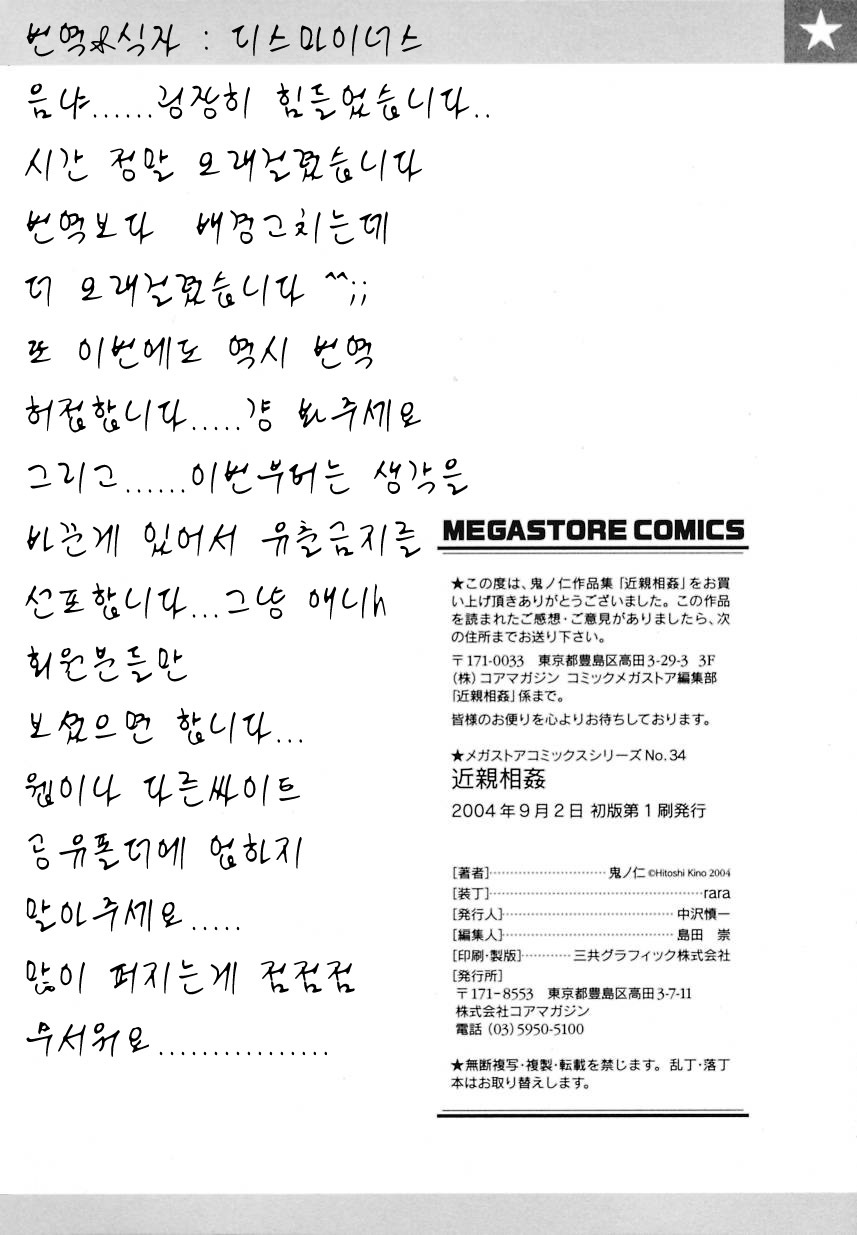 번역&식자 : 디스마이너스
음냐......굉장히 힘들었습니다..
시간 정말 오래걸렸습니다
번역보다 배경고치는데
더 오래걸렸습니다 ^^;;
또 이번에도 역시 번역
허접합니다.....걍 봐주세요
그리고......이번부터는 생각을
바꾼게 있어서 유출금지를
선포합니다...그냥 애니h
회원분들만
보셨으면 합니다...
웹이나 다른싸이트
공유폴더에 업하지
말아주세요.....
많이 퍼지는게 점점점
무서워요................
MEGASTORE COMICS
★この度は、鬼ノ仁作品集「近親相姦」をお買
い上げ頂きありがとうございました。この作品
を読まれたご感想・ご意見がありましたら、次
の住所までお送り下さい。
〒171-0033 東京都豊島区高田3-29-3 3F
(株)コアマガジン コミックメガストア編集部
「近親相姦」係まで。
皆様のお便りを心よりお待ちしております。
★メガストアコミックスシリーズNo.34
近親相姦
2004年9月2日 初版第1刷発行
[著者]…………………………鬼ノ仁 ©Hitoshi Kino 2004
[装丁]…………………………………………………rara
[発行人]………………………………………中沢慎一
[編集人]………………………………………島田 崇
[印刷・製版]…………三共グラフィック株式会社
[発行所]
〒171-8553 東京都豊島区高田3-7-11
株式会社コアマガジン
電話 (03)5950-5100
★無断複写・複製・転載を禁じます。乱丁・落丁
本はお取り替えします。